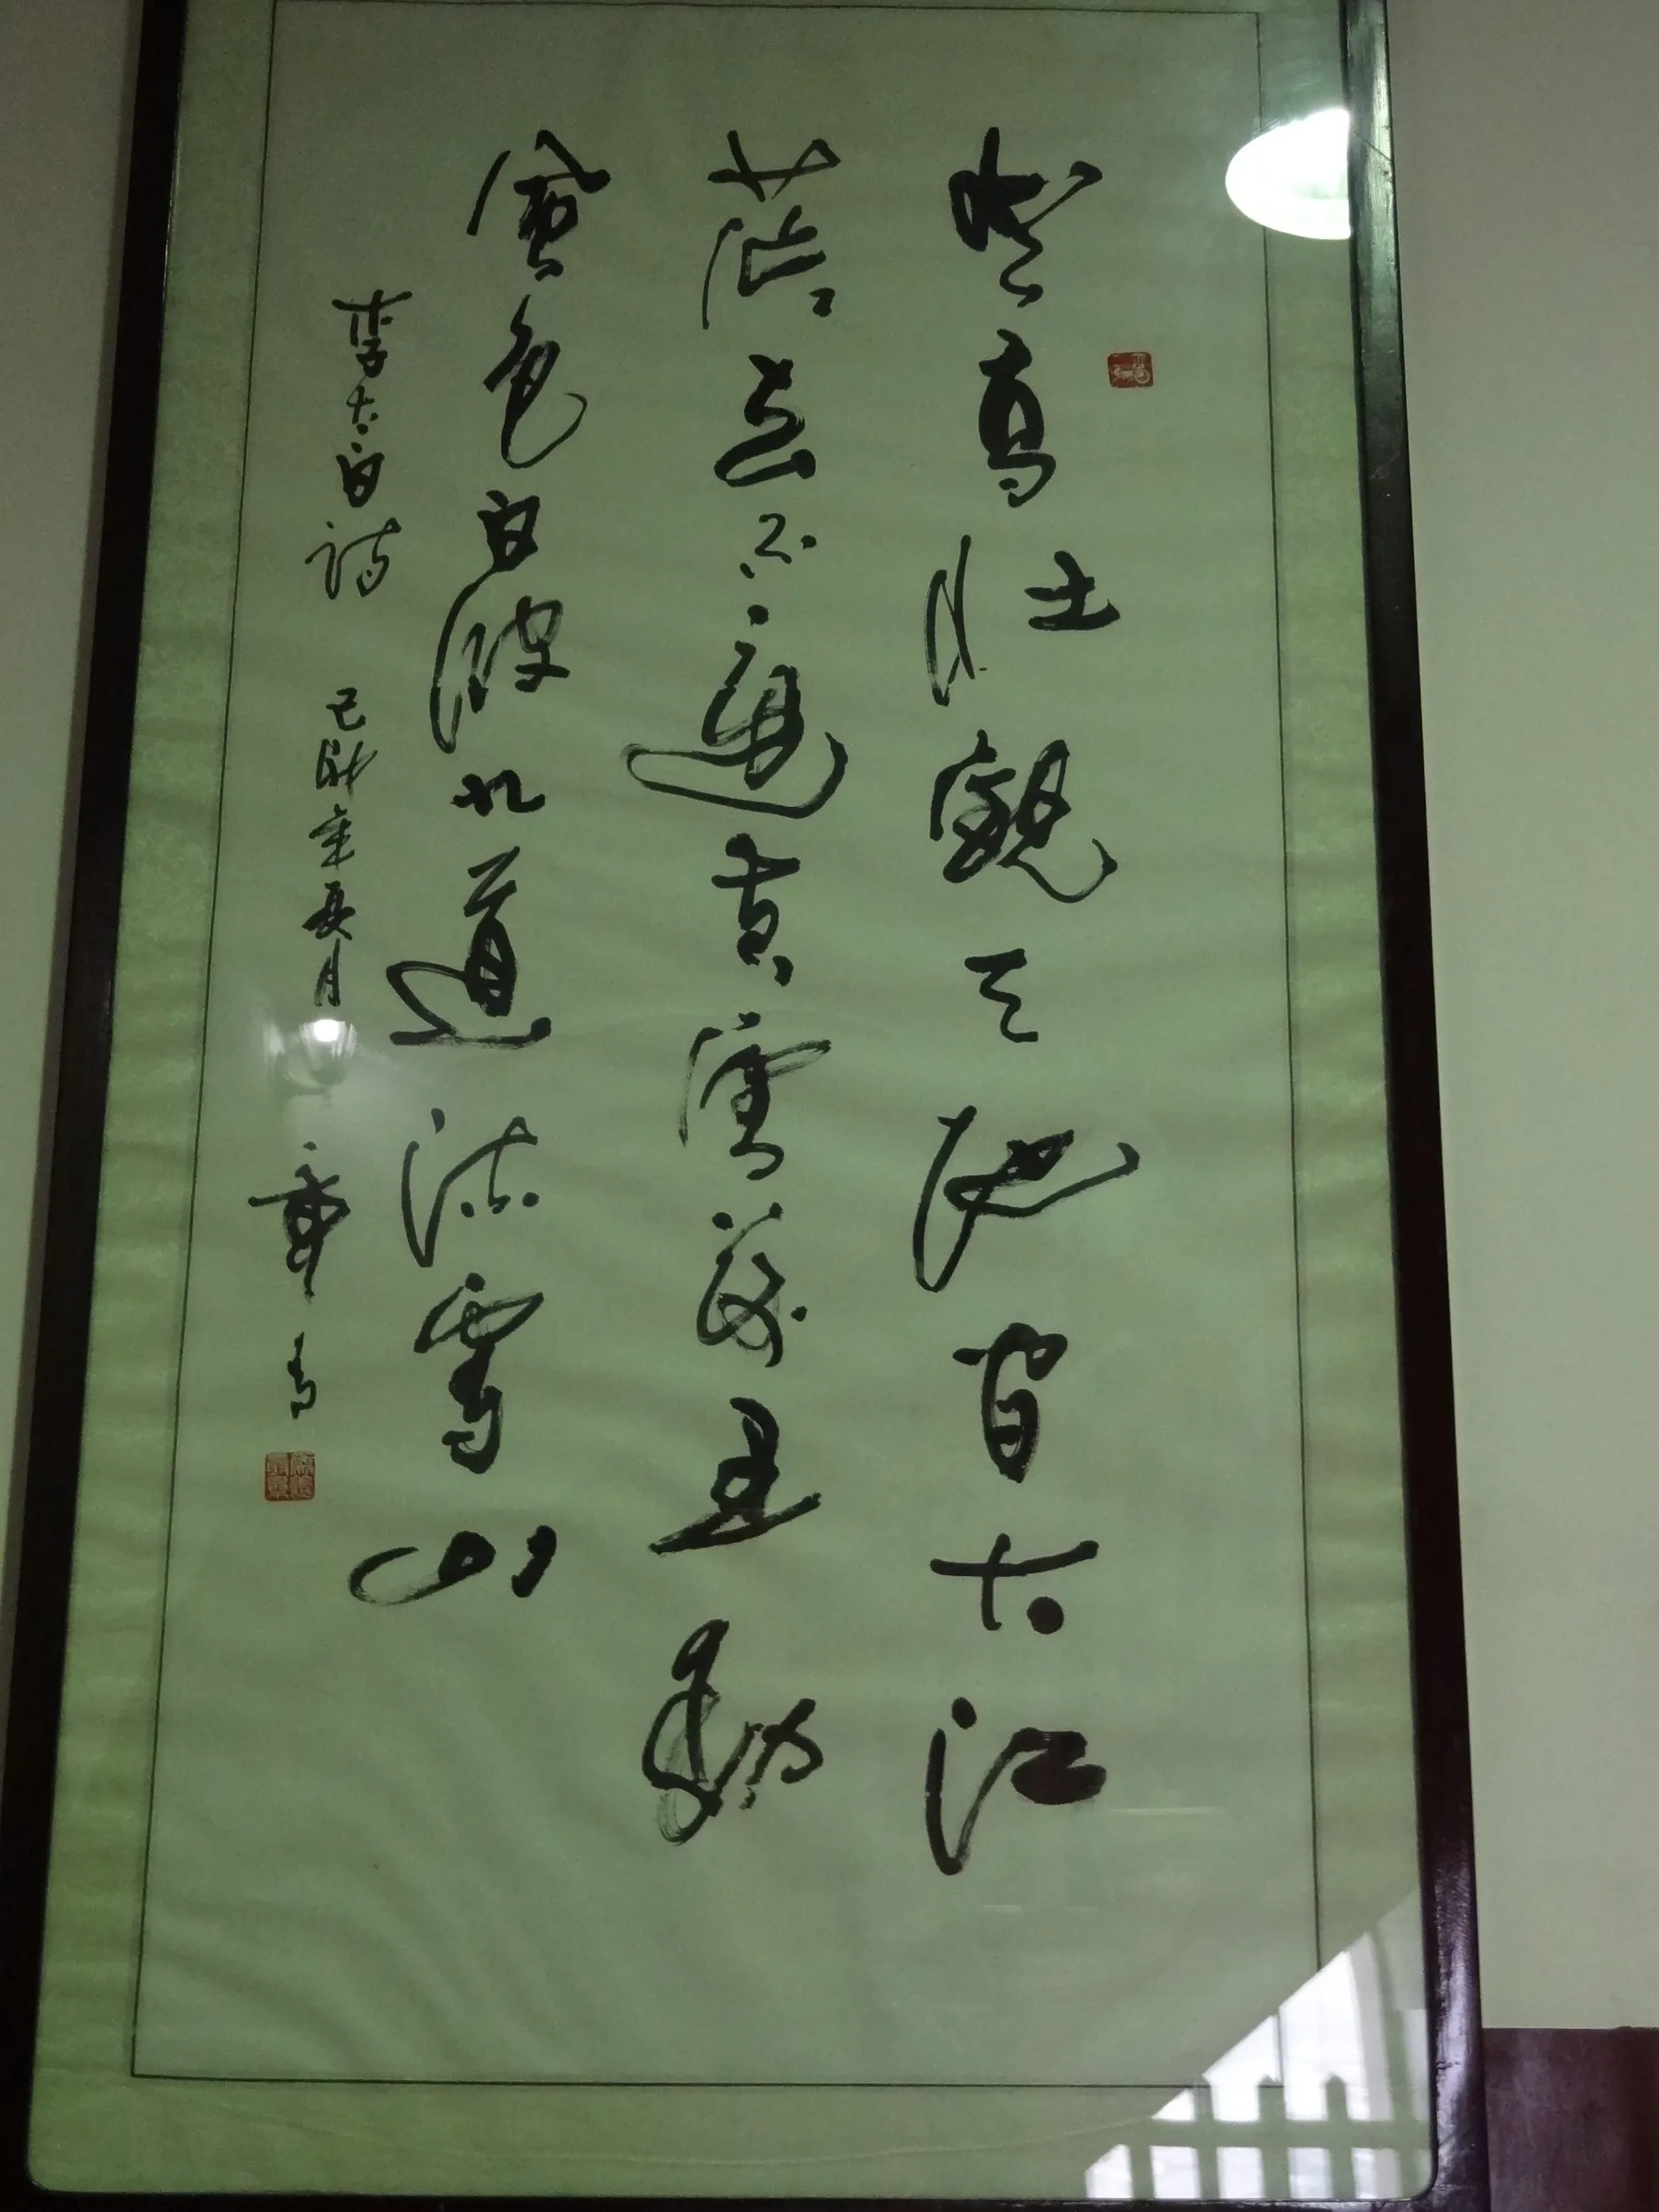 登高壯觀天地間大江
茫茫去不還黃雲萬里動
風色白波九道流雪山
李太白詩 己卯年夏月